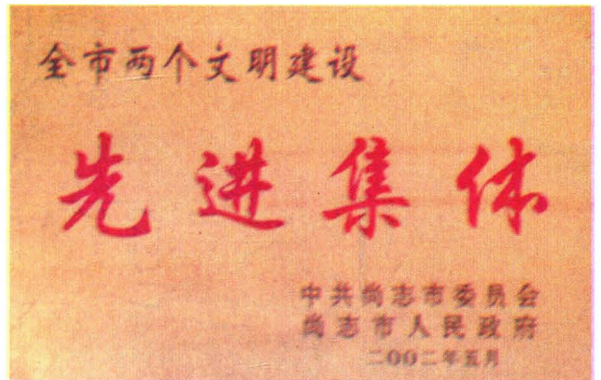 全市两个文明建设
先进集体
中共尚志市委员会
尚志市人民政府
二00二年五月